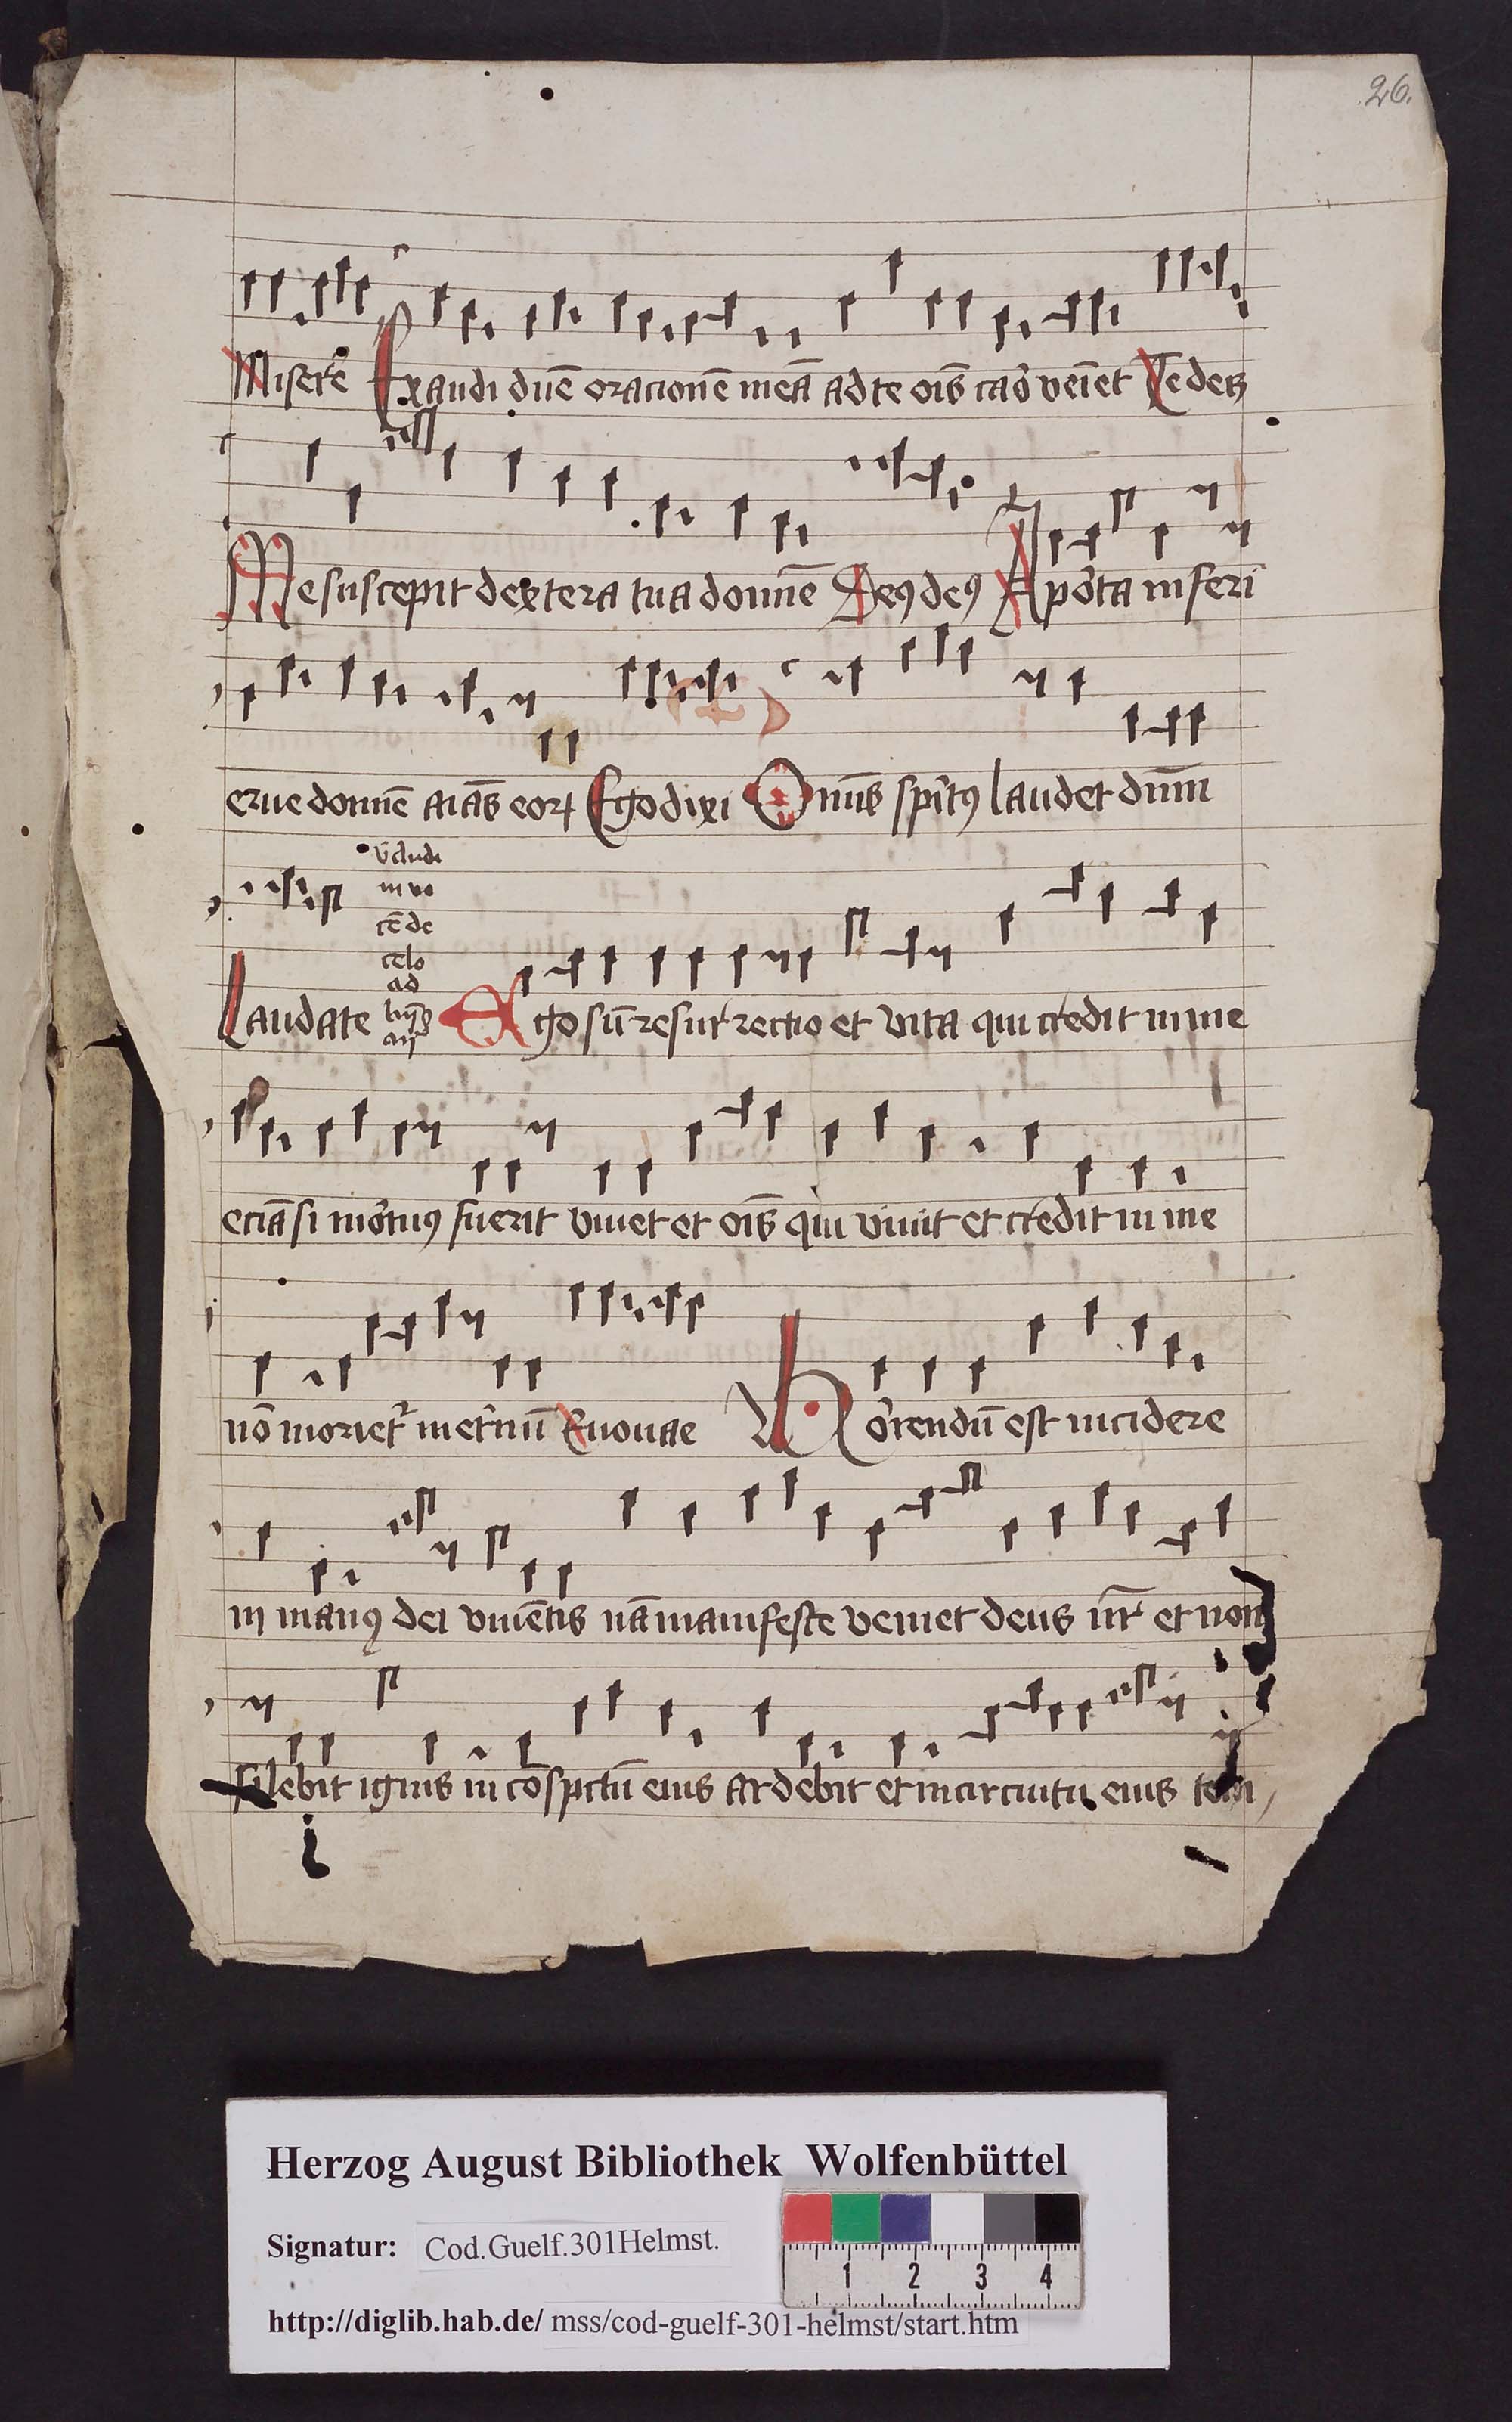 26.
Misere᷑ Exaudi dn̄e oracionē meā ad te oīs caō veīet Te decꝫ
Me suscepit dextera tua domīne Deꝰ deꝰ A porta inferi
erue domīne aīas eoꝝ Ego dixi Omīs spītꝰ laudet dnm̄
v̄ Audi
in vo
cē de
celo
ad
Laudate Ego sū resurrectio et vita qui credit in me
eciā si mortuꝰ fuerit viuet et oīs qui viuit et credit in me
nō moriet᷑ in et᷑nū Euouae Horrendū est incidere
in manꝰ dei viuētis nā manifeste veniet deus nr̄ et non
silebit ignis in cōspctū eius ardebit et in circuitu eius tem
Herzog August Bibliothek Wolfenbüttel
Signatur: Cod.Guelf.301Helmst.
1 2 3 4
http://diglib.hab.de/ mss/cod-guelf-301-helmst/start.htm